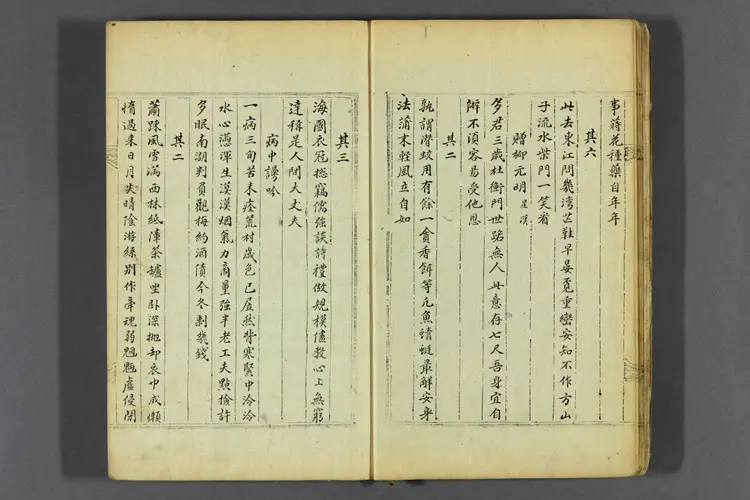 事蒔花種藥自年年
其六
此去東江問幾湾芒鞋早晏覓重巒安知不作方山
子流水柴門一笑看
贈柳元明是漢
多君三歲杜衡門世路無人此意存七尺吾身宜自
辦不須容易受他恩
其二
孰謂潛蛟用有餘一貪香餌等凡魚蜻蜓最解安身
法蒲末輕風立自如
其三
海國衣冠摠竊儒強談詩禮倣規模儘教心上無窮
達稱是人間大丈夫
病中謾吟
一病三旬苦未痊荒村歲色已居然背寒緊中泠泠
水心懣渾生漠漠烟氣力商量強半老工夫點檢許
多眠南湖判負觀梅約酒債今冬剩幾錢
其二
蕭踈風雪滿西林紙障茶壚坐臥深拋却衣巾成懶
惰過來日月失晴陰游絲別作牽魂弱魍魎虛侵閒